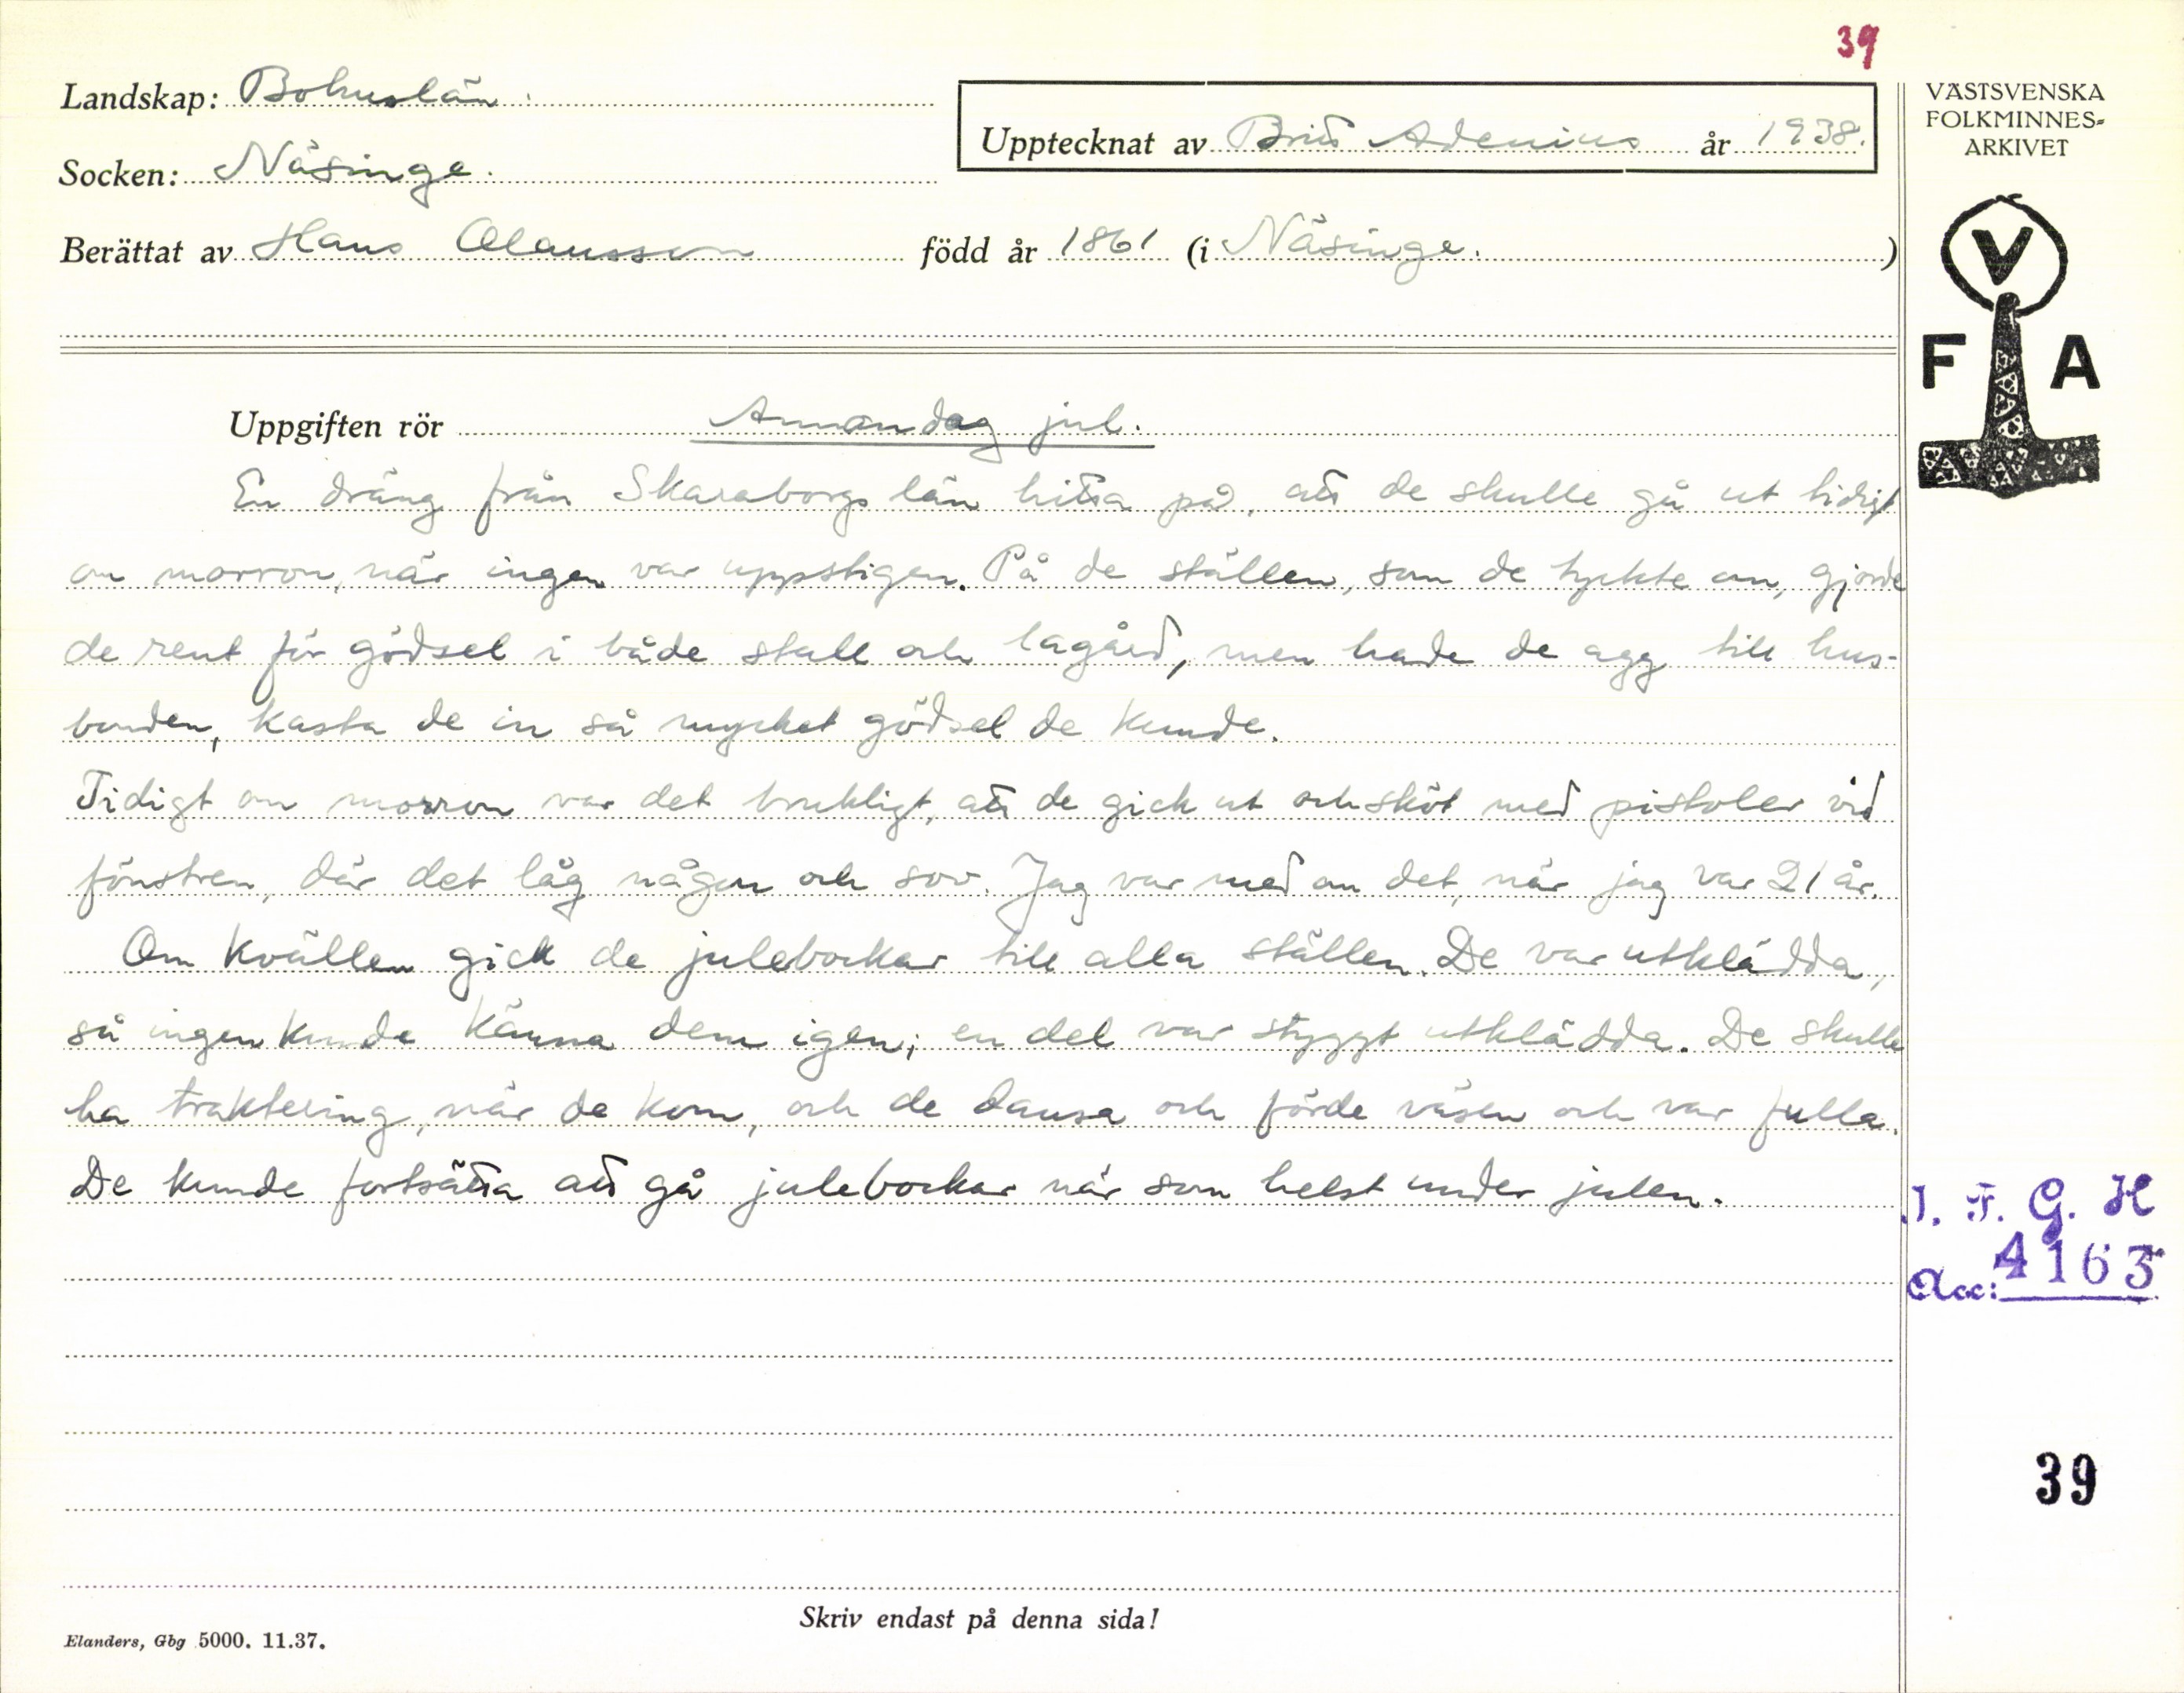 39
Landskap: Bohuslän.
Socken: Näsinge.
Upptecknat av Britt Adenius år 1938.
Berättat av Hans Olausson född år 1861 (i Näsinge.)
VÄSTSVENSKA
FOLKMINNES-
ARKIVET
V
F A
Uppgiften rör Annandag jul.
En dräng från Skaraborgs län hitta på, att de skulle gå ut tidigt
om morron, när ingen var uppstigen. På de ställen, som de tyckte om, gjorde
de rent för gödsel i både stall och lagård, men hade de agg till hus-
bonden, kasta de in så mycket gödsel de kunde.
Tidigt om morron var det brukligt, att de gick ut och sköt med pistoler vid
fönstren, där det låg någon och sov. Jag var med om det, när jag var 21 år.
Om kvällen gick de julebockar till alla ställen. De var utklädda,
så ingen kunde känna dem igen; en del var styggt utklädda. De skulle
ha traktering, när de kom, och de dansa och förde väsen och var fulla.
De kunde fortsätta att gå julebockar när som helst under julen.
I. F. G. H
Acc: 4163
39
Skriv endast på denna sida!
Elanders, Gbg 5000. 11.37.